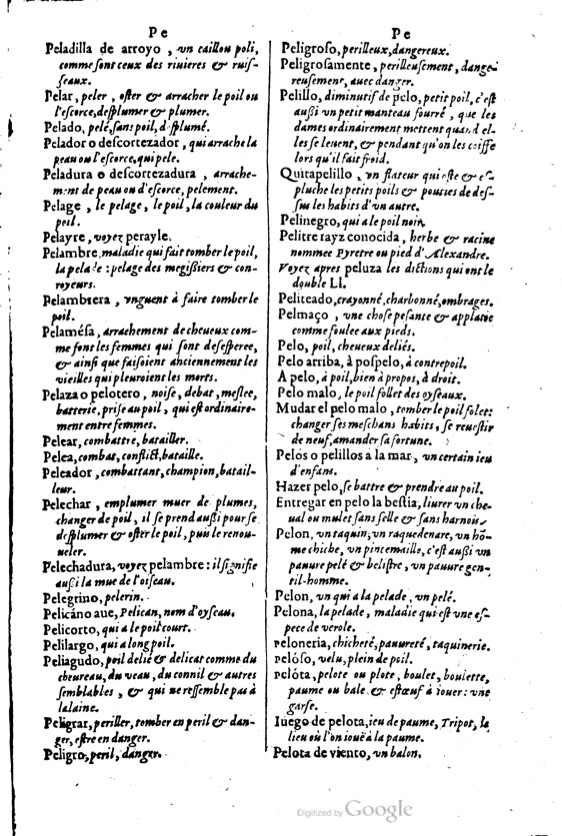 Pe
Peladilla de arroyo, vn caillou poli,
comme sont ceux des riuieres & ruis-
seaux.
Pelar, peler, oster & arracher le poil ou
l'escorce, desplumer & plumer.
Pelado, pelé, sans poil, desplumé.
Pelador o descortezador, qui arrache la
peau ou l'escorce, qui pele.
Peladura o descortezadura, arrache-
ment de peau ou d'escorce, pelement.
Pelage, le pelage, le poil, la couleur du
poil.
Pelayre, voyez perayle.
Pelambre, maladie qui fait tomber le poil,
la pelade: pelage des megissiers & con-
royeurs.
Pelambrera, vnguent à faire tomber le
poil.
Pelamésa, arrachement de cheueux com-
me font les femmes qui sont desesperee,
& ainsi que faisoient anciennement les
vieilles qui pleuroient les morts.
Pelaza o pelotero, noise, debat, meslee,
batterie, prise au poil, qui est ordinaire-
ment entre femmes.
Pelear, combattre, batailler.
Pelea, combat, conflict, bataille.
Peleador, combattant, champion, batail-
leur.
Pelechar, emplumer muer de plumes,
changer de poil, il se prend aussi pour se
desplumer & oster le poil, puis le renou-
ueler.
Pelechadura, voyez pelambre: il signifie
aussi la mue de l'oiseau.
Pelegrino, pelerin.
Pelicáno aue, Pelican, nom d'oyseau.
Pelicorto, qui a le poil court.
Pelilargo, qui a long poil.
Peliagudo, poil delié & delicat comme du
cheureau, du veau, du connil & autres
semblables, & qui ne ressemble pas à
la laine.
Peligrar, periller, tomber en peril & dan-
ger, estre en danger.
Peligro, peril, danger.
Pe
Peligroso, perilleux, dangereux.
Peligrosamente, perilleusement, dange-
reusement, auec danger.
Pelillo, diminutif de pelo, petit poil, c'est
aussi vn petit manteau fourré, que les
dames ordinairement mettent quand el-
les se leuent, & pendant qu'on les coiffe
lors qu'il fait froid.
Quitapelillo, vn flateur qui oste & es-
pluche les petits poils & poucies de des-
sus les habits d'vn autre.
Pelinegro, qui a le poil noir.
Pelitre rayz conocida, herbe & racine
nommee Pyretre ou pied d'Alexandre.
Voyez apres peluza les dictions qui ont le
double Ll.
Peliteado, crayonné, charbonné, ombrages.
Pelmaço, vne chose pesante & applatie
comme foulee aux pieds.
Pelo, poil, cheueux deliés.
Pelo arriba, à pospelo, à contrepoil.
A pelo, à poil, bien à propos, à droit.
Pelo malo, le poil follet des oyseaux.
Mudar el pelo malo, tomber le poil folet:
changer ses meschans habits, se reuestir
de neuf, amander sa fortune.
Pelos o pelillos à la mar, vn certain ieu
d'enfans.
Hazer pelo, se battre & prendre au poil.
Entregar en pelo la bestia, liurer vn che-
ual ou mulet sans selle & sans harnois.
Pelon, vn taquin, vn raquedenare, vn hõ-
me chiche, vn pincemaille, c'est aussi vn
pauure pelé & belistre, vn pauure gen-
til-homme.
Pelon, vn qui a la pelade, vn pelé.
Pelona, la pelade, maladie qui est vne es-
pece de verole.
peloneria, chicheté, pauureté, taquinerie.
pelóso, velu, plein de poil.
pelóta, pelote ou plote, boulet, boulette,
paume ou bale & estœuf à iouer: vne
garse.
Iuego de pelota, ieu de paume, Tripot, le
lieu où l'on iouë à la paume.
Pelota de viento, vn balon.
Digitized by Google